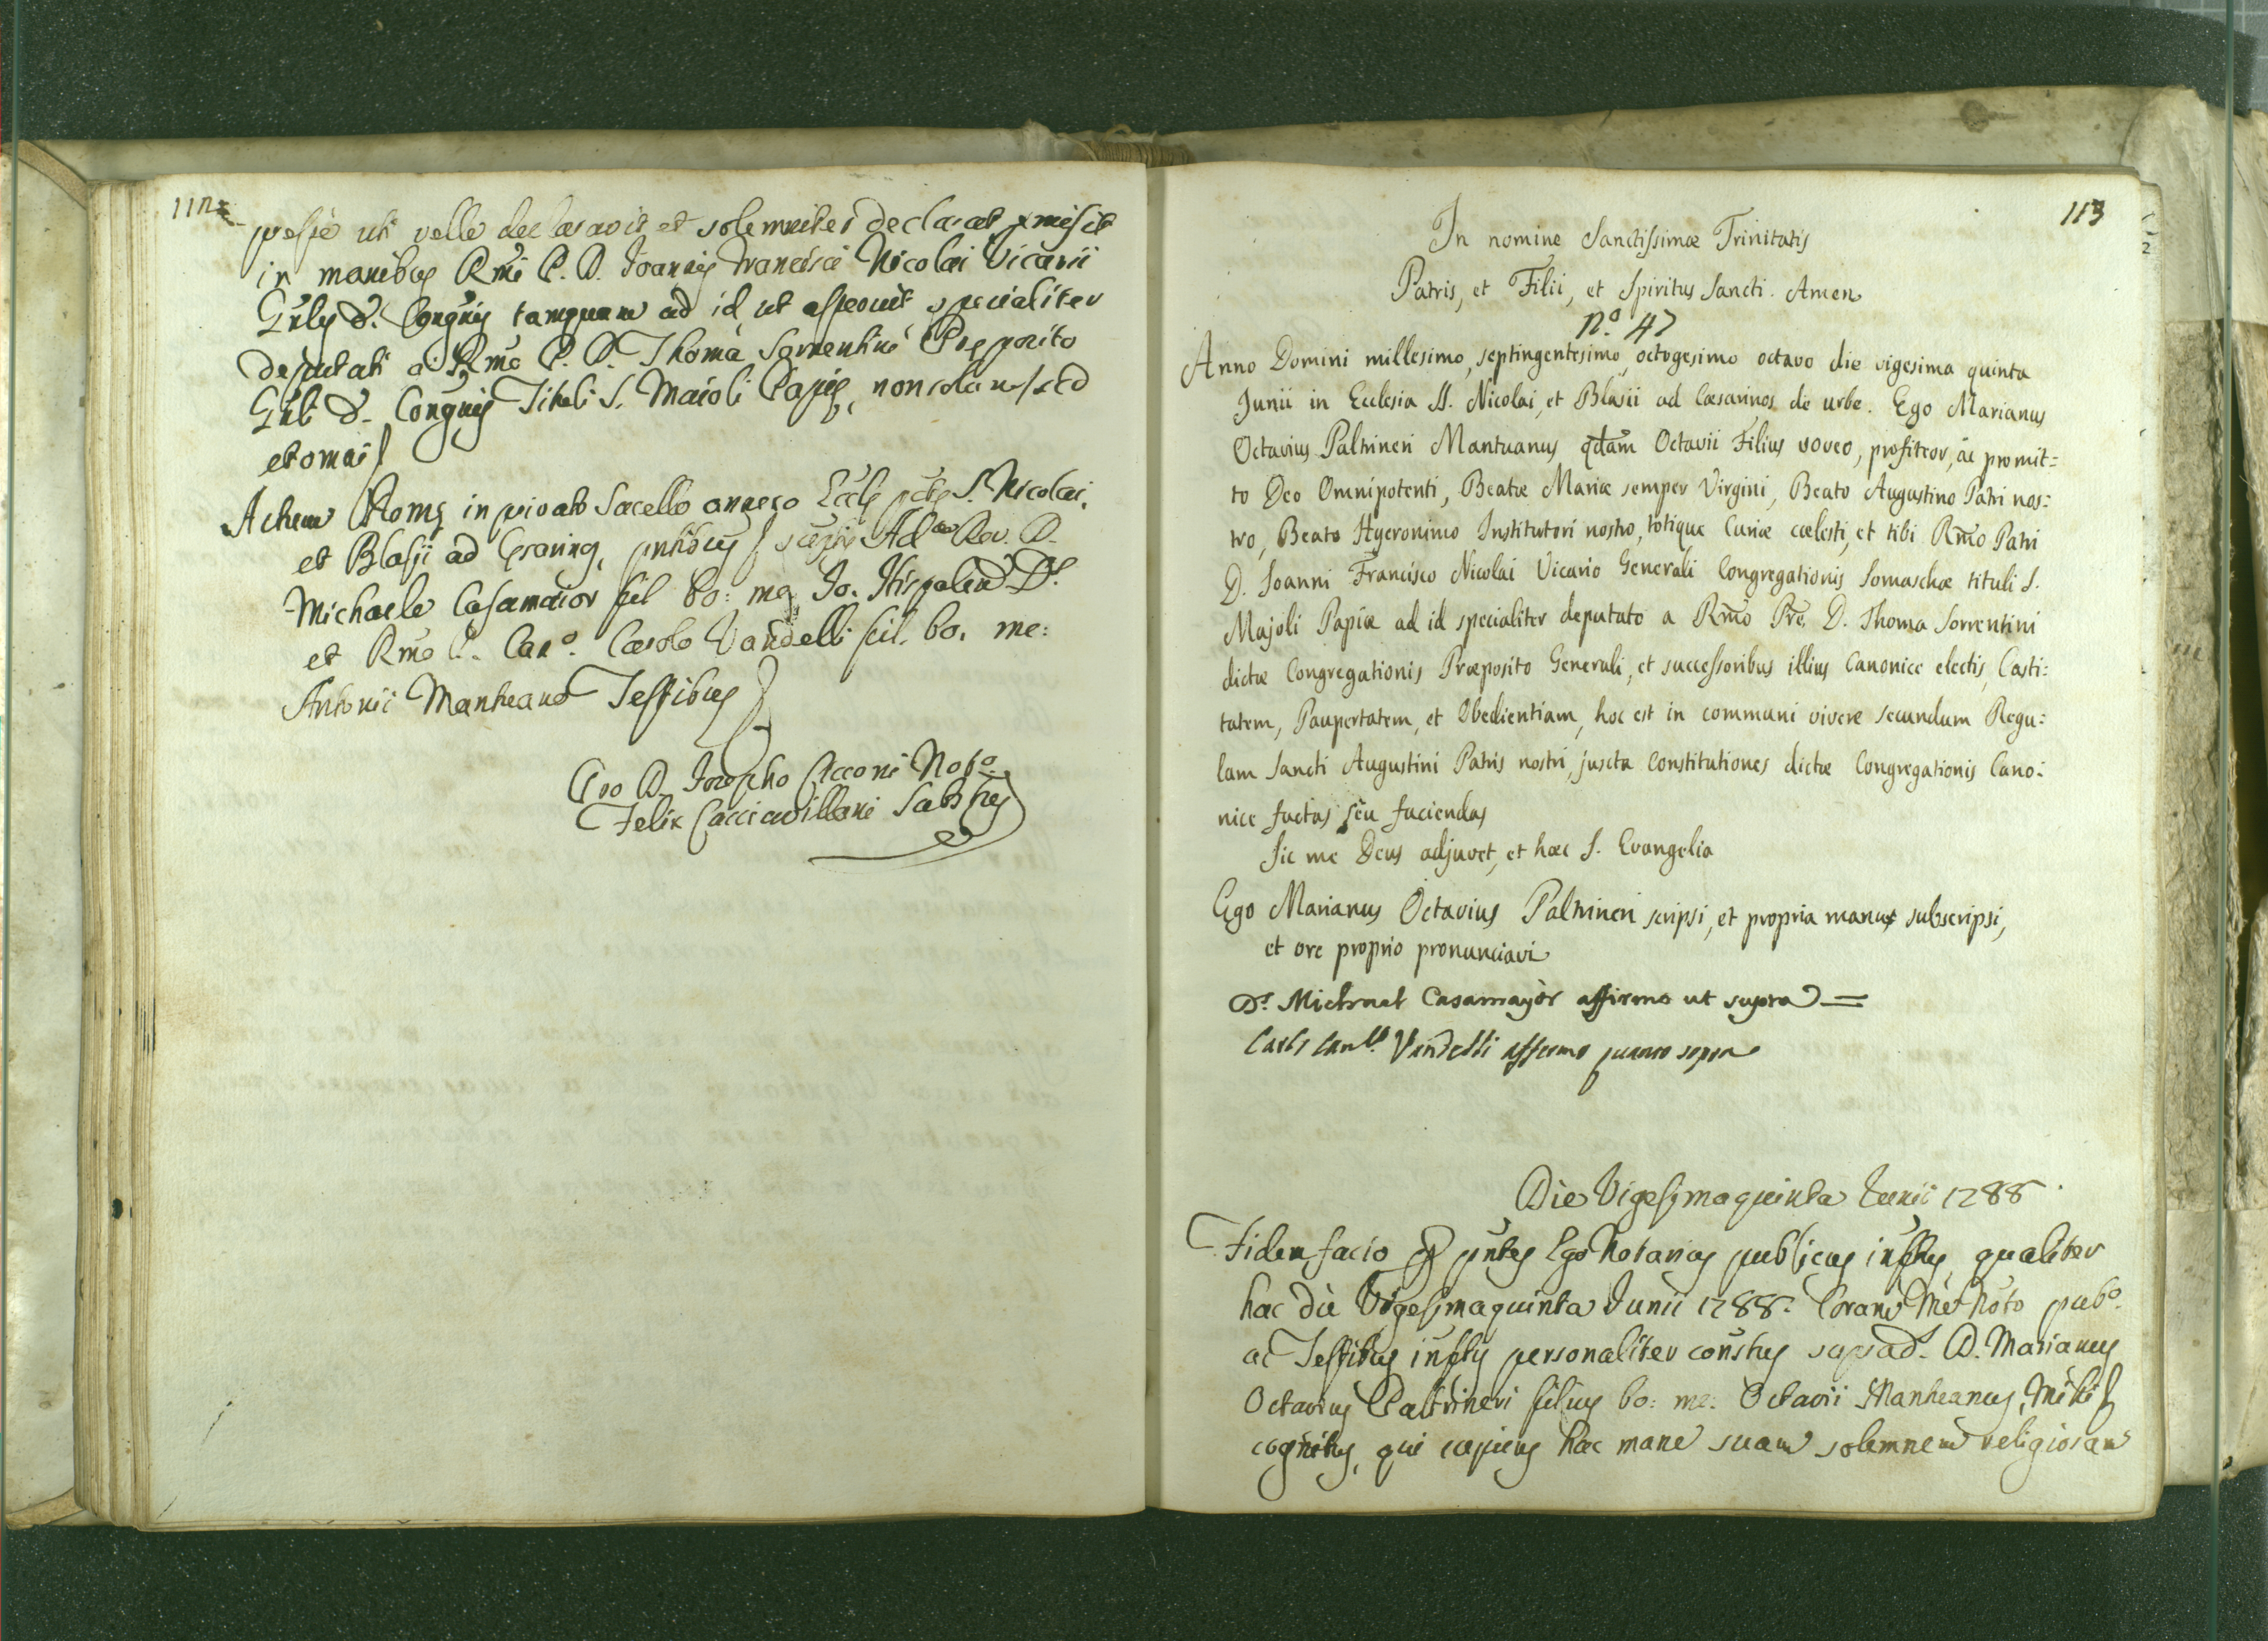 112
velle declaravit et solemniter declarat emisit
in manibus Rm̃i P. D. Joannis Francisci Nicolai Vicarii
Gñlis d. Congñis tamquam ad id ut asseruit specialiter
deputati a Rm̃o P. D. Thoma Sorrentini Preposito
Gñli d. Congñis Tituli S. Maioli Papię, non solum, sed
et omni
Actum Romę in privato Sacello annexo Ecclę S. Nicolai,
et Blasii ad Cęsarinos, pñtibus Ad. Rev. D.
Michaele Casamaior fil. bo: me Jo. Hispalen
et Rm̃o D. Canº. Carolo Vandelli fil. bo. me:
Antonii Mantuano Testibus
Pro D. Josepho Cicconi Notº.
Felix Cacciavillani Subs
113
In nomine Sanctissimæ Trinitatis
Patris, et Filii, et Spiritus Sancti. Amen
Nº. 47
Anno Domini millesimo, septingentesimo, octogesimo octavo die vigesima quinta
Junii in Ecclesia SS. Nicolai, et Blasii ad Cæsarinos de urbe. Ego Marianus
Octavius Paltrineri Mantuanus qdam Octavii Filius voveo, profiteor, ac promit=
to Deo Omnipotenti, Beatæ Mariæ semper Virgini, Beato Augustino Patri nos=
tro, Beato Hyeronimo Institutori nostro, totique Curiæ cælesti, et tibi Rm̃o Patri
D. Joanni Francisco Nicolai Vicario Generali Congregationis Somaschæ tituli S.
Majoli Papiæ ad id specialiter deputato a Rm̃o Pr̃e. D. Thoma Sorrentini
dictæ Congregationis Præposito Generali, et successoribus illius Canonice electis, Casti=
tatem, Paupertatem, et Obedientiam, hoc est in communi vivere secundum Regu=
lam Sancti Augustini Patris nostri, juxta Constitutiones dictæ Congregationis Cano=
nice factas seu faciendas
Sic me Deus adjuvet, et hæc S. Evangelia
Ego Marianus Octavius Paltrineri scripsi, et propria manu subscripsi,
et ore proprio pronunciavi
Dr. Michael Casamayòr affirmo ut supra =
Carlo Vandelli affermo quanto sopra
Die Vigesimaquinta Junii 1788
Fidem facio pñtes Ego Notarius publicus inftus, qualiter
hac die Vigesimaquinta Junii 1788. Coram me Noto pubº.
ac Testibus inftis personaliter constus suprad. D. Marianus
Octavius Paltrineri filius bo: me: Octavii Mantuanus, mihi
cognitus, qui cupiens hac mane suam solemnem religiosam